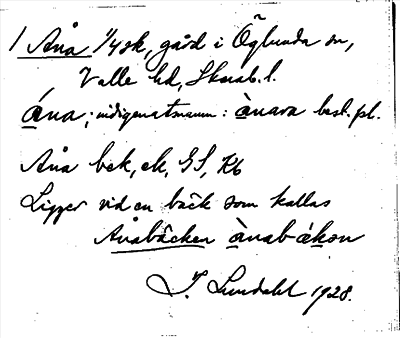 1 Åna 1/4 sk, gård i Öglunda sn,
Valle hd, Skarab. l.
ána; indigenatsnamn: ànara best. pl.
Åna bek, ek, GS, Kb
Ligger vid en bäck som kallas
Ånabäcken ànabäkən
J. Lundahl 1928.